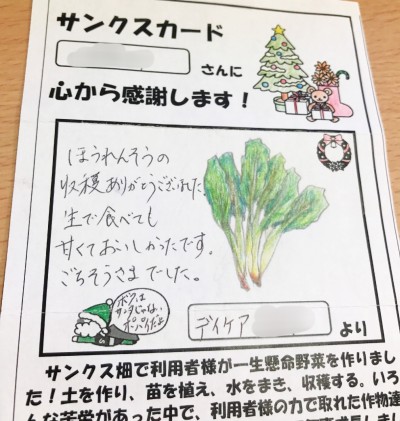 サンクスカード
さんに
心から感謝します！
ほうれんそうの
収穫ありがとうございました
生で食べても
甘くておいしかったです。
ごちそうさまでした。
ボクは
サンタじゃない
ポパイだよ
デイケア
より
サンクス畑で利用者様が一生懸命野菜を作りまし
た！土を作り、苗を植え、水をまき、収穫する。いろ
んな苦労があった中で、利用者様の力で取れた作物達